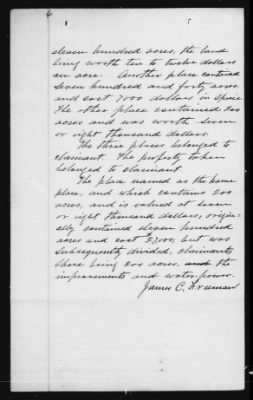 6
eleven hundred acres, the land
being worth ten to twelve dollars
an acre. Another place contained
seven hundred and forty acres
and cost 7000 dollars in specie
The other place contained 800
acres and was worth seven
or eight thousand dollars.
The three places belonged to
claimant. The property taken
belonged to claimant.
The place named as the home
place, and which contains 200
acres, and is valued at seven
or eight thousand dollars, origin-
ally contained eleven hundred
acres and cost 27,000, but was
subsequently divided, claimants
share being 200 acres, and the
improvements and water power.
James C. Freeman